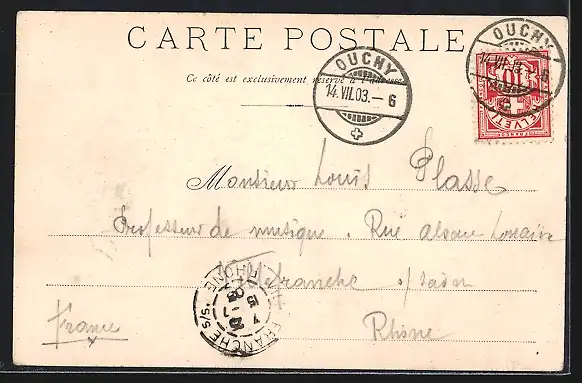 CARTE POSTALE
Ce côté est exclusivement réservé à l'adresse
OUCHY
14.VII.03.–6
OUCHY
14.VII.03.–6
10
HELVETIA
FRANCO
Monsieur Louis Plasse
Professeur de musique. Rue alsace Lorraine
Villefranche s/ Saône
Rhône
France
VILLEFRANCHE S/S
RHONE
15
7
03